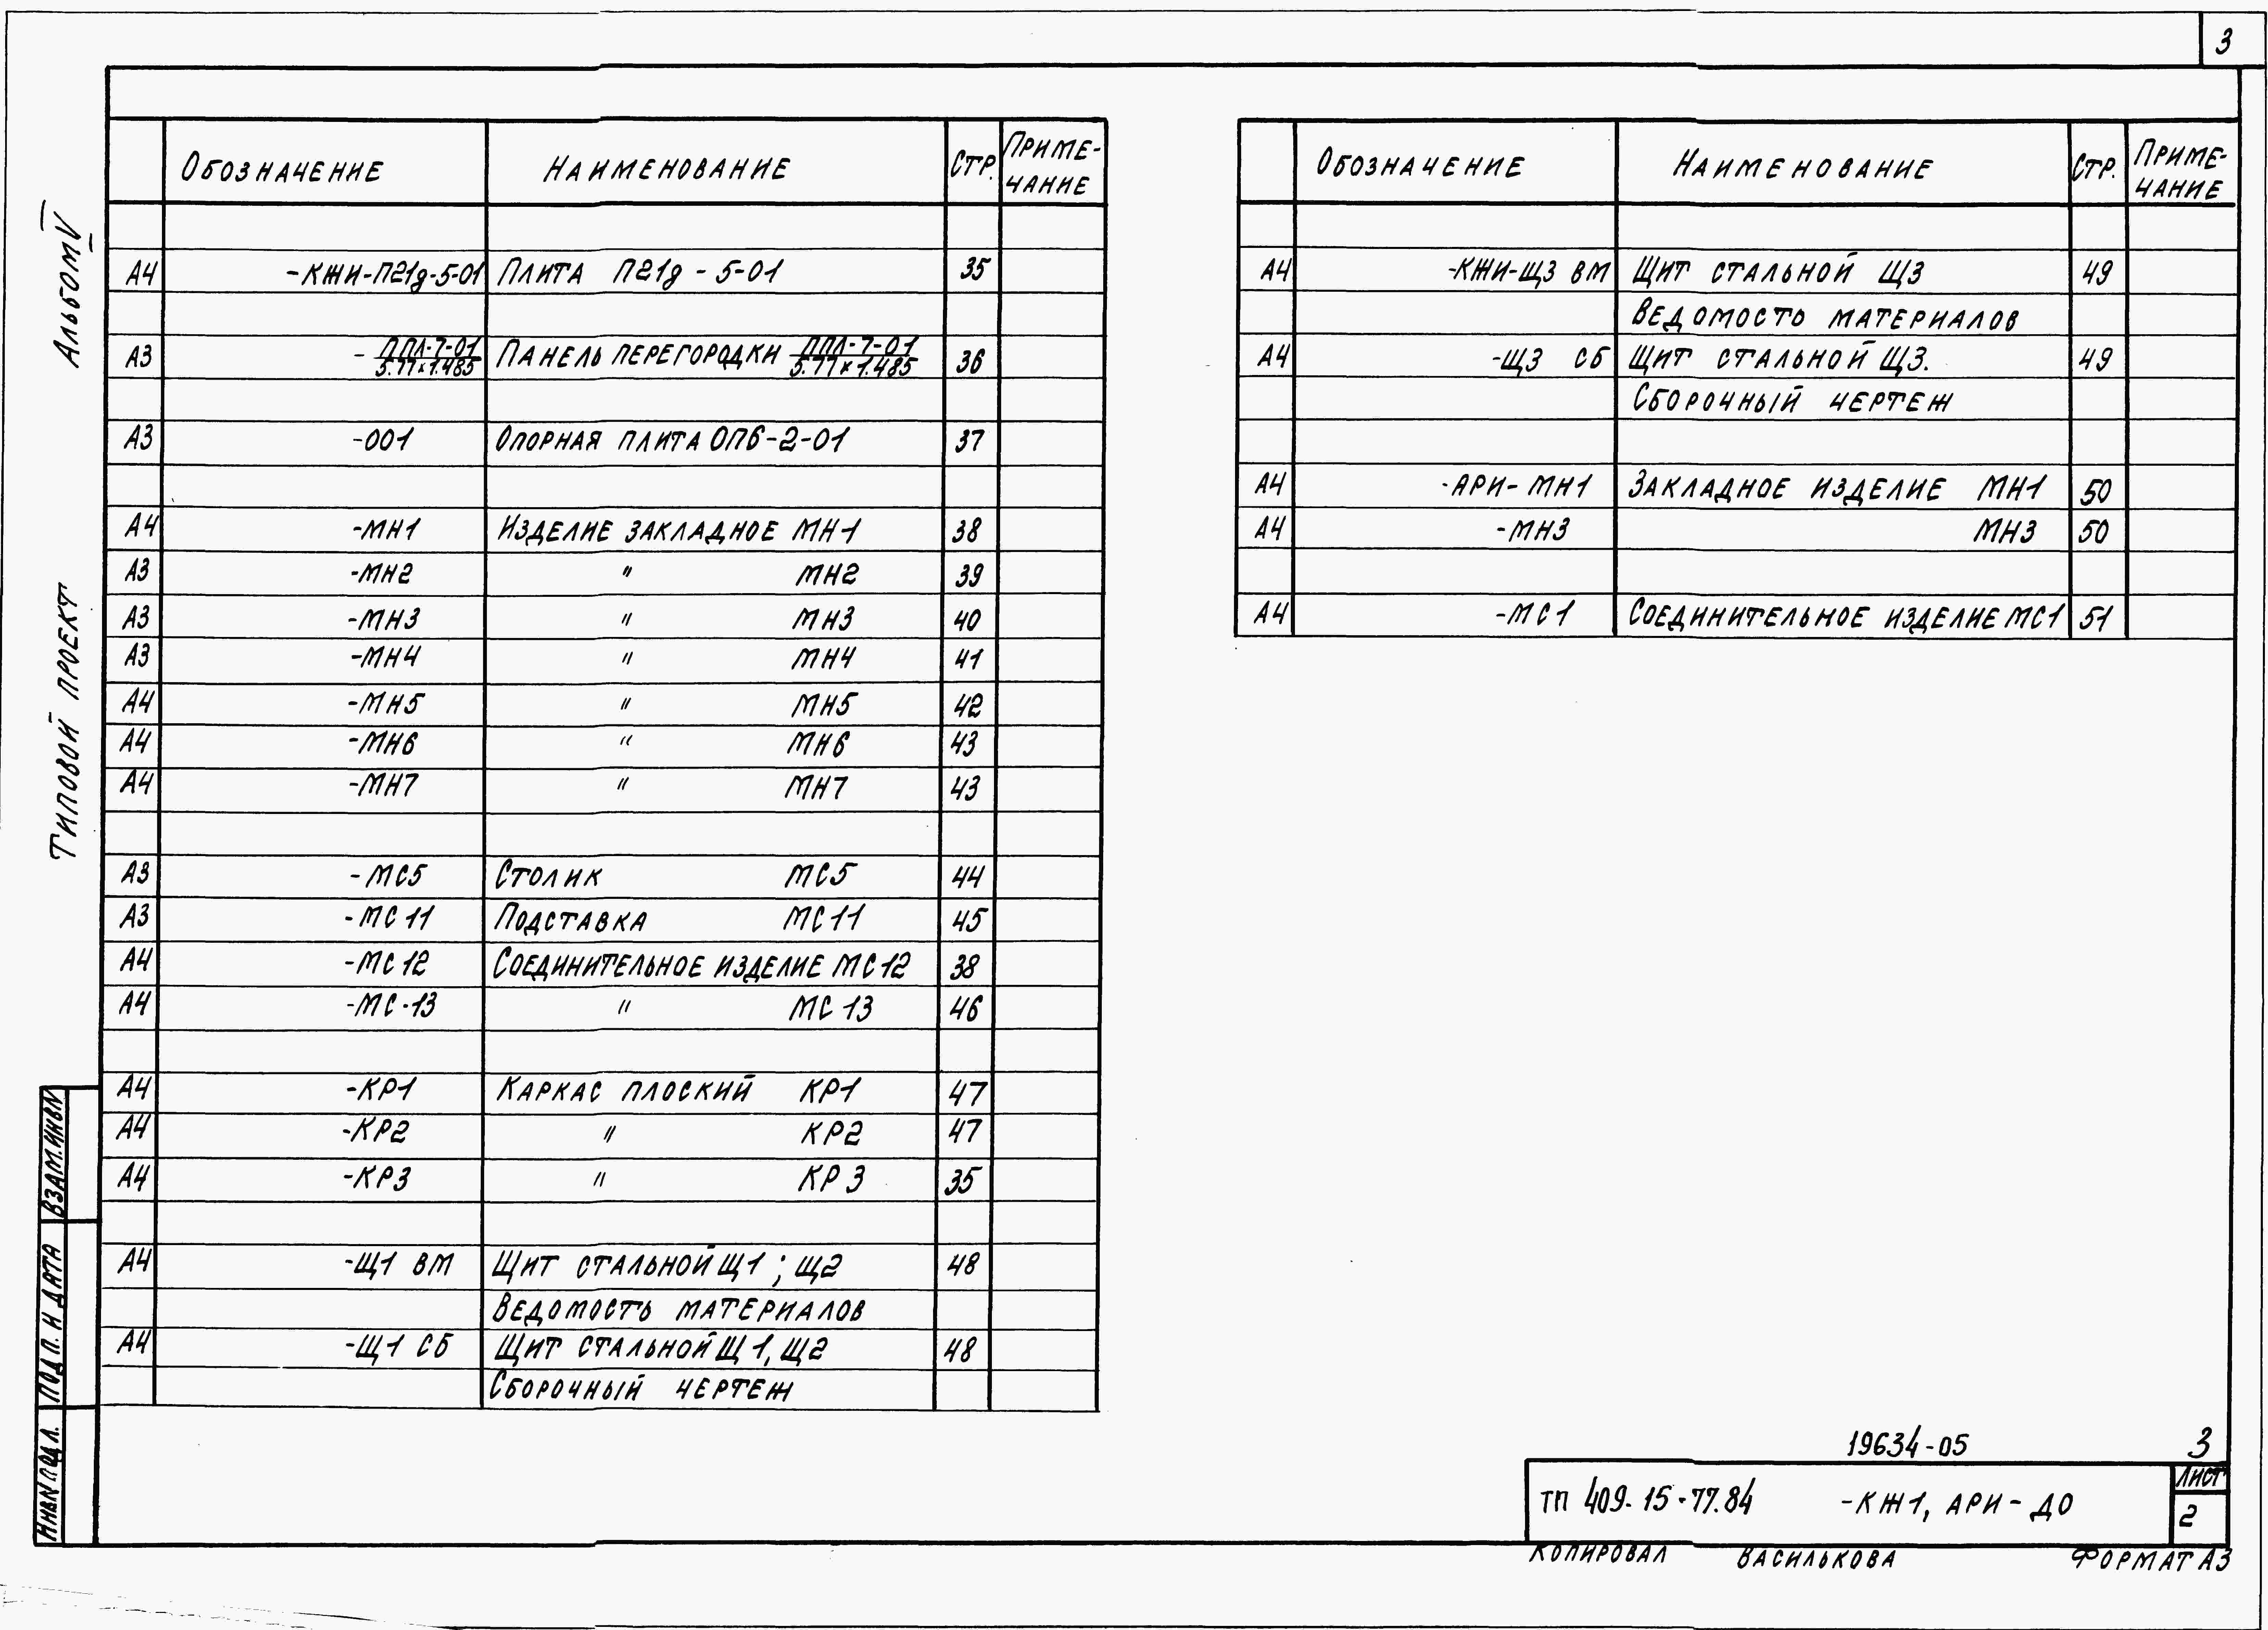 3
Альбом V
Типовой проект
Обозначение Наименование Стр. Приме-
чание
А4 -КЖИ-П21д-5-01 Плита П21д-5-01 35
А3 - ППЛ-7-01 / 5.77х1.485 Панель перегородки ППЛ-7-01 / 5.77х1.485 36
А3 -001 Опорная плита ОП6-2-01 37
А4 -МН1 Изделие закладное МН1 38
А3 -МН2 " МН2 39
А3 -МН3 " МН3 40
А3 -МН4 " МН4 41
А4 -МН5 " МН5 42
А4 -МН6 " МН6 43
А4 -МН7 " МН7 43
А3 -МС5 Столик МС5 44
А3 -МС11 Подставка МС11 45
А4 -МС12 Соединительное изделие МС12 38
А4 -МС-13 " МС13 46
А4 -КР1 Каркас плоский КР1 47
А4 -КР2 " КР2 47
А4 -КР3 " КР3 35
А4 -Щ1 ВМ Щит стальной Щ1; Щ2 48
Ведомость материалов
А4 -Щ1 СБ Щит стальной Щ1, Щ2 48
Сборочный чертеж
Обозначение Наименование Стр. Приме-
чание
А4 -КЖИ-Щ3 ВМ Щит стальной Щ3 49
Ведомость материалов
А4 -Щ3 СБ Щит стальной Щ3. 49
Сборочный чертеж
А4 -АРИ-МН1 Закладное изделие МН1 50
А4 -МН3 МН3 50
А4 -МС1 Соединительное изделие МС1 51
Взам.инв№
Подп. и дата
Инв№подл.
19634-05 3
ТП 409-15-77.84 -КЖ1, АРИ-ДО
Лист
2
Копировал Василькова Формат А3